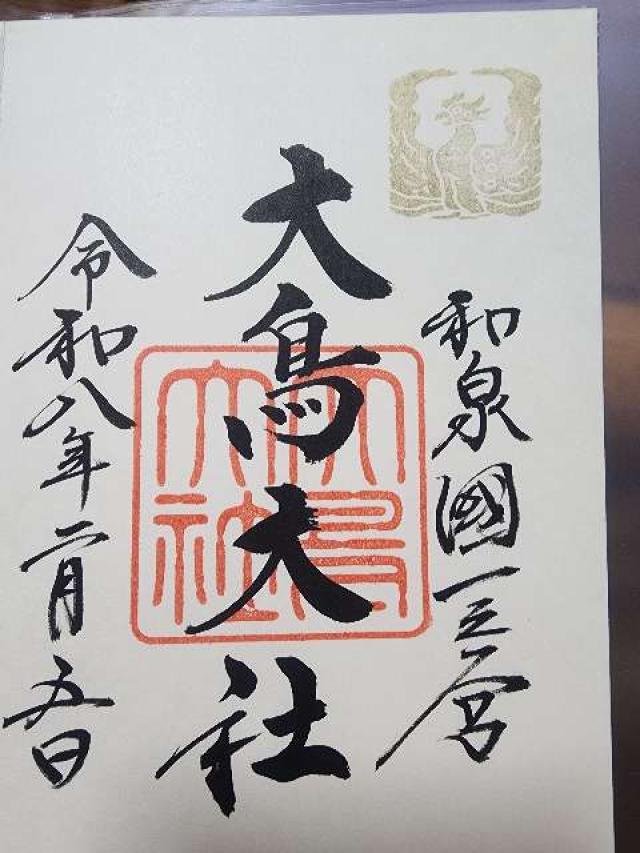 和泉國一之宮
大鳥大社
大鳥大社
令和八年二月五日